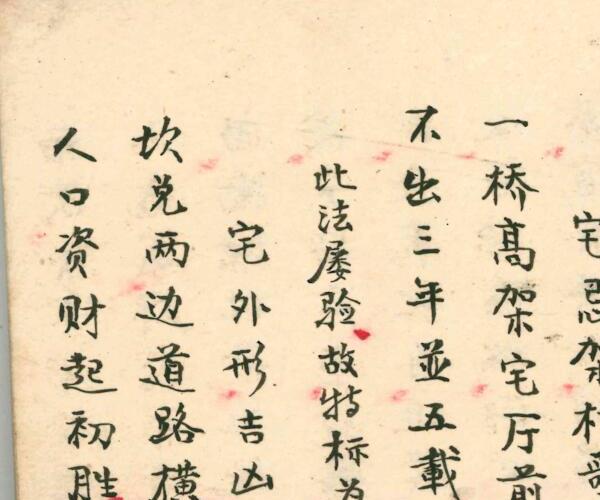 宅忌架
一桥高架宅厅前
不出三年並五載
此法屡验故特标为
宅外形吉凶
坎兑两边道路横
人口资财起初胜